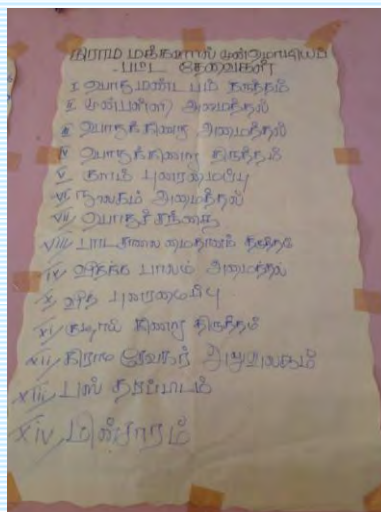 கிராம மக்களால் முன்னுரிமைப்
பட்ட தேவைகள்
i பொதுமண்டபம் திருத்தம்
ii முன்பள்ளி அமைத்தல்
iii பொதுக்கிணறு அமைத்தல்
iv பொதுக்கிணறு திருத்தம்
v குளம் புனரமைப்பு
vi நூலகம் அமைத்தல்
vii பொதுச்சந்தை
viii பாடசாலை மைதானம் திருத்தம்
ix பாலம் அமைத்தல்
x வீதி புனரமைப்பு
xi குழாய் கிணறு திருத்தம்
xii கிராம சேவகர் அலுவலகம்
xiii பஸ் தரிப்பிடம்
xiv மின்சாரம்